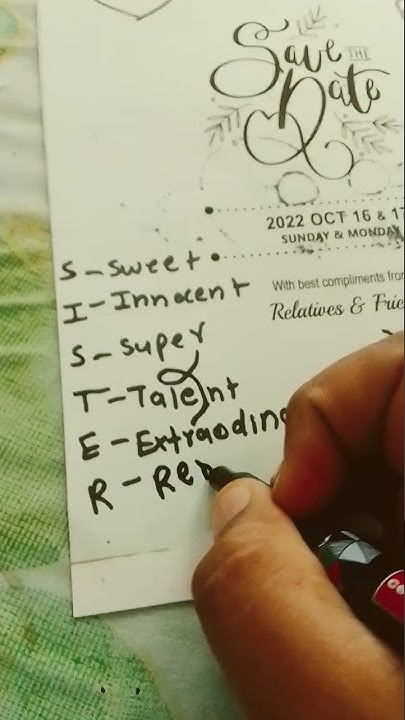 Save THE
Date
2022 OCT 16 & 17
SUNDAY & MONDAY
With best compliments from
Relatives & Frie
S - Sweet
I - Innocent
S - Super
T - Talent
E - Extraodin
R - Re